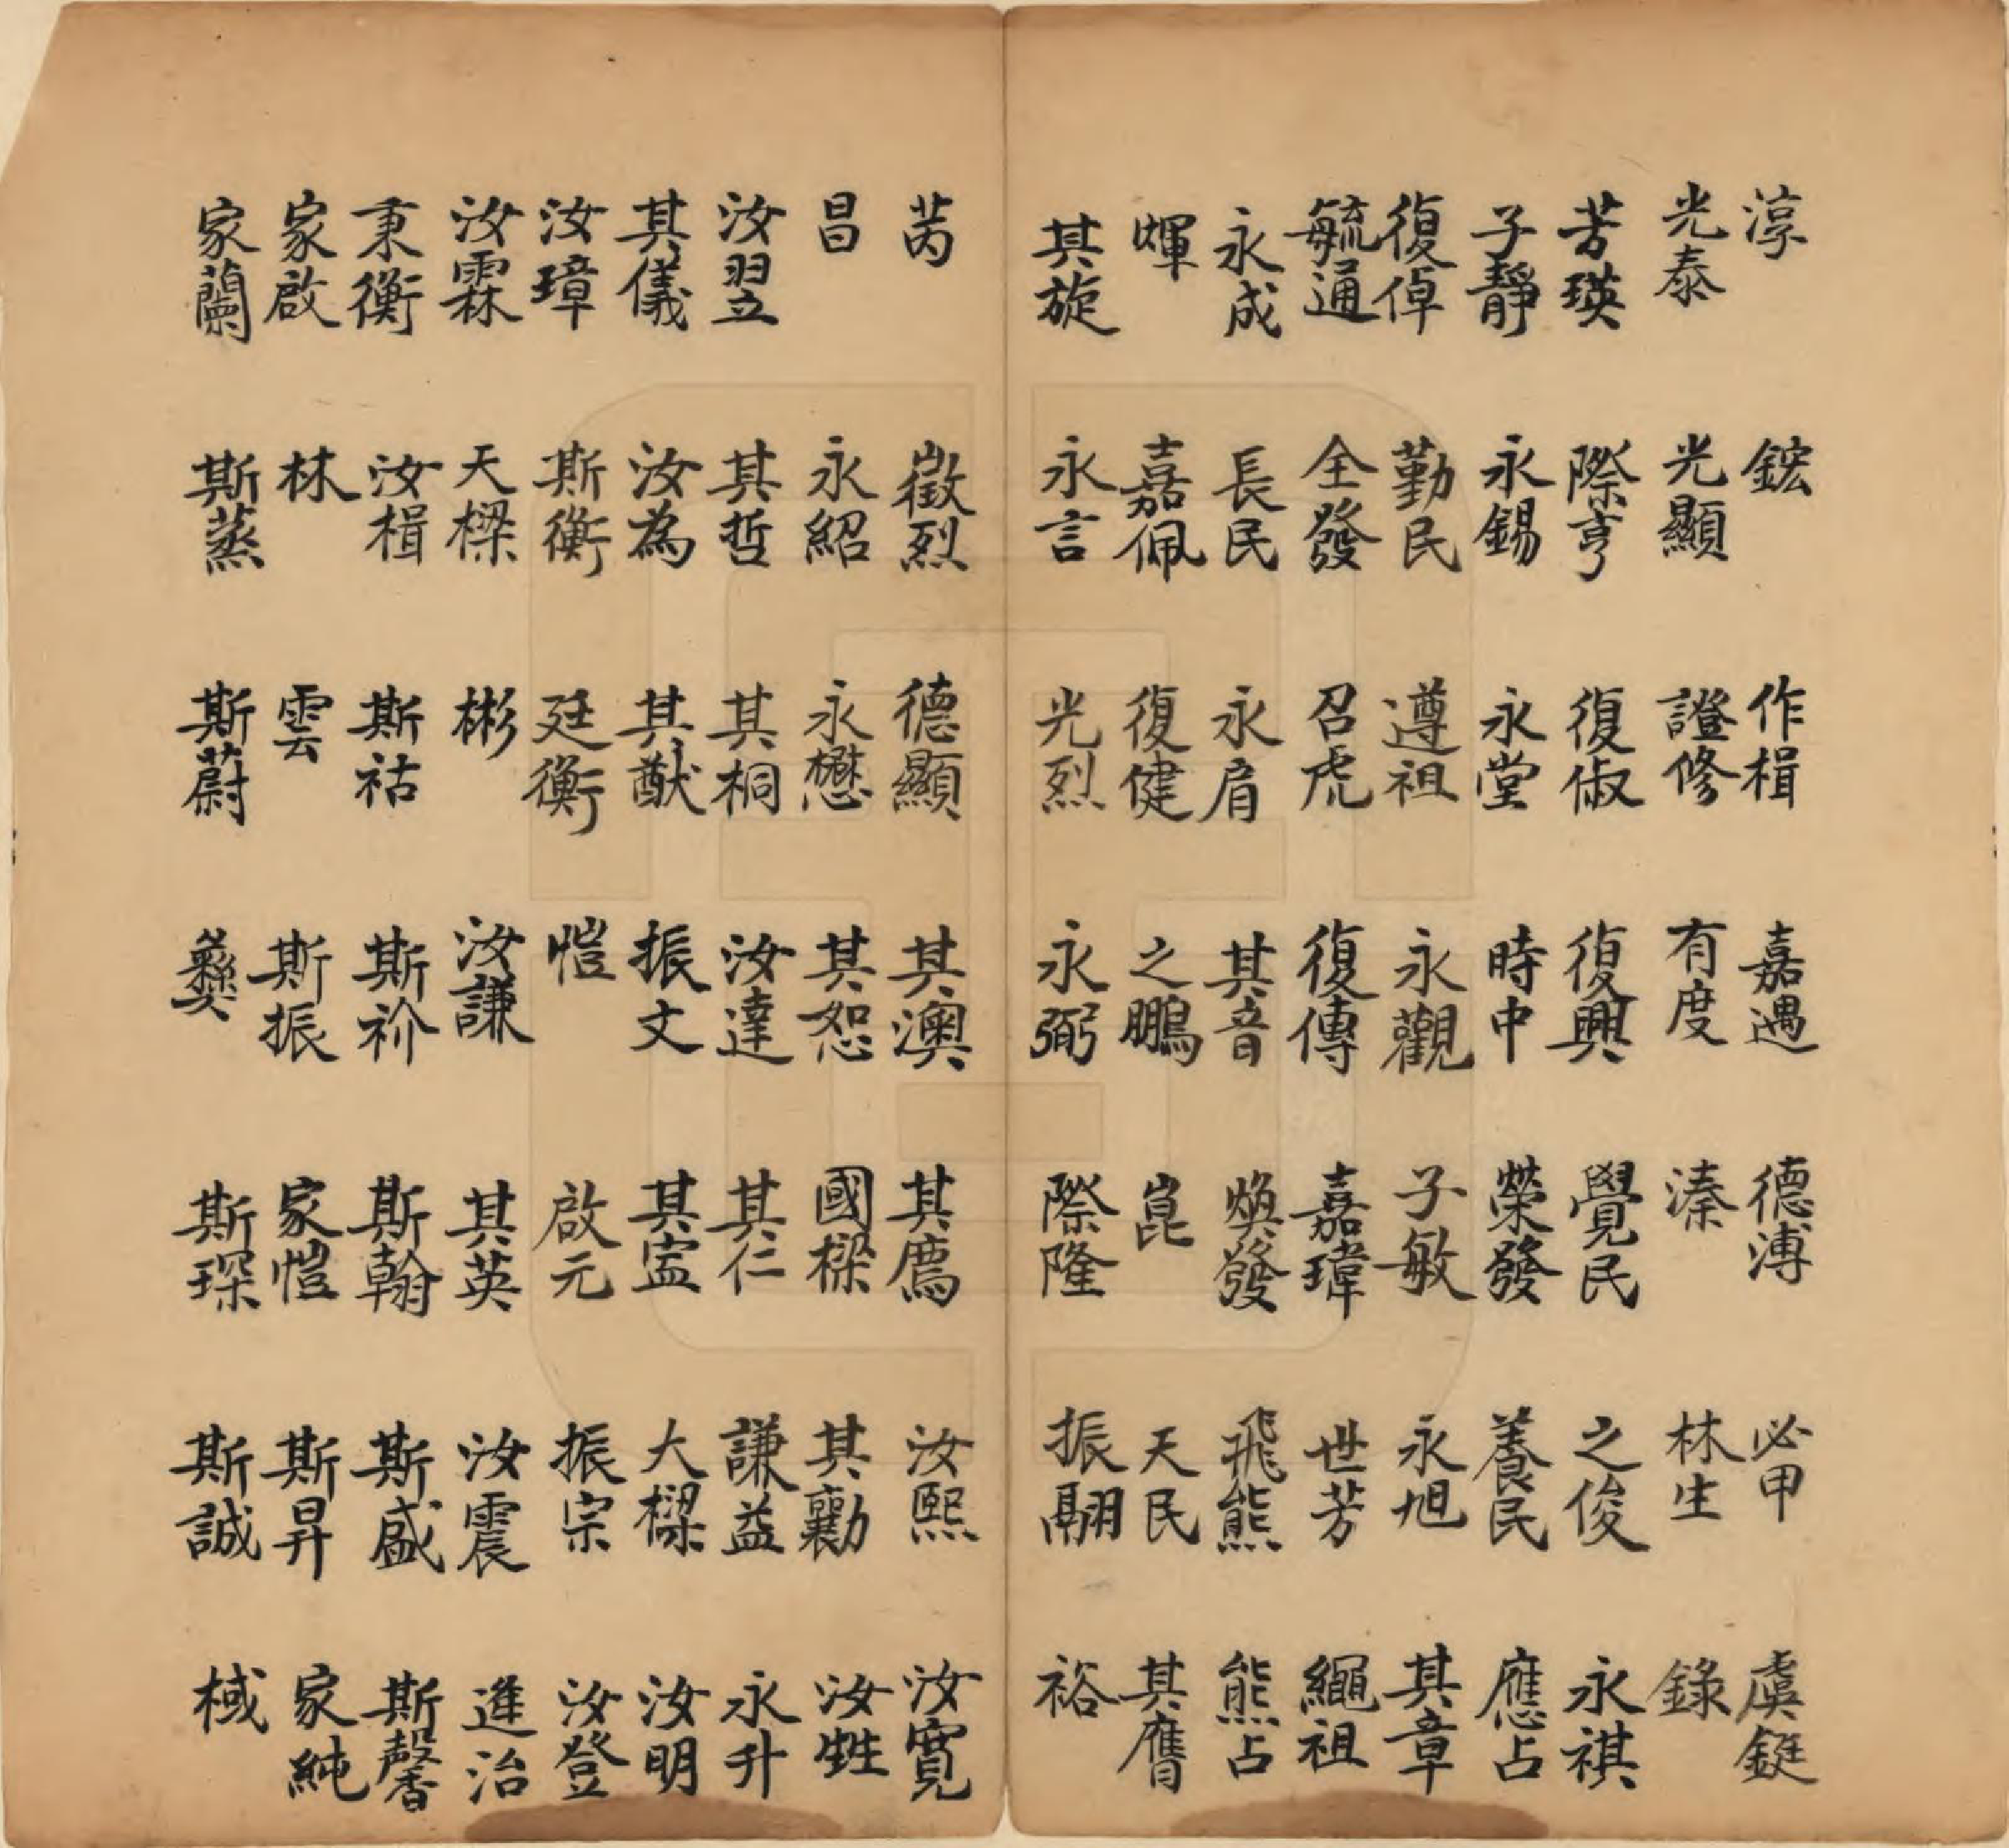 淳 鋐 作楫 嘉遇 德溥 必甲 虞鋌
光泰 光顯 證修 有度 溱 林生 錄
芳瑛 際亨 復俶 復興 覺民 之俊 永祺
子靜 永錫 永堂 時中 榮發 養民 應占
復倬 勤民 遵祖 永觀 子敏 永旭 其章
毓通 全發 召虎 復傳 嘉瑋 世芳 繩祖
永成 長民 永肩 其音 煥發 飛熊 熊占
煇 嘉佩 復健 之鵬 崑 天民 其膺
其旋 永言 光烈 永弼 際隆 振翮 裕
芮 徵烈 德顯 其澳 其廌 汝熙 汝寬
昌 永紹 永懋 其恕 國樑 其勷 汝甡
汝翌 其哲 其桐 汝達 其仁 謙益 永升
其儀 汝為 其猷 振文 其寍 大樑 汝明
汝璋 斯衡 廷衡 愷 啟元 振宗 汝登
汝霖 天樑 彬 汝謙 其英 汝震 進治
秉衡 汝楫 斯祜 斯衸 斯翰 斯盛 斯馨
家啟 林 雲 斯振 家愷 斯昇 家純
家蘭 斯蒸 斯蔚 彝 斯琛 斯誠 棫